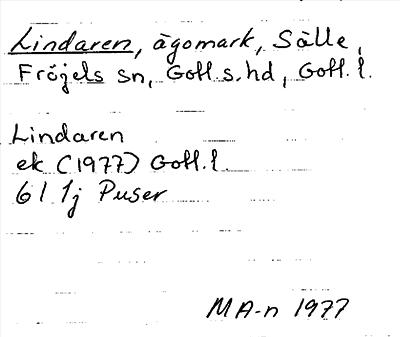 Lindaren, ägomark, Sälle,
Fröjels sn, Gotl. s. hd, Gotl. l.
Lindaren
ek (1977) Gotl. l.
6 I 1j Puser
MA-n 1977